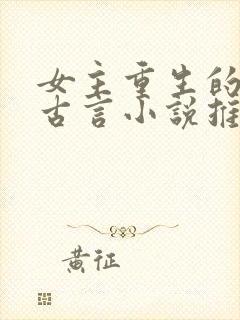 女主重生的
古言小說推
黃征